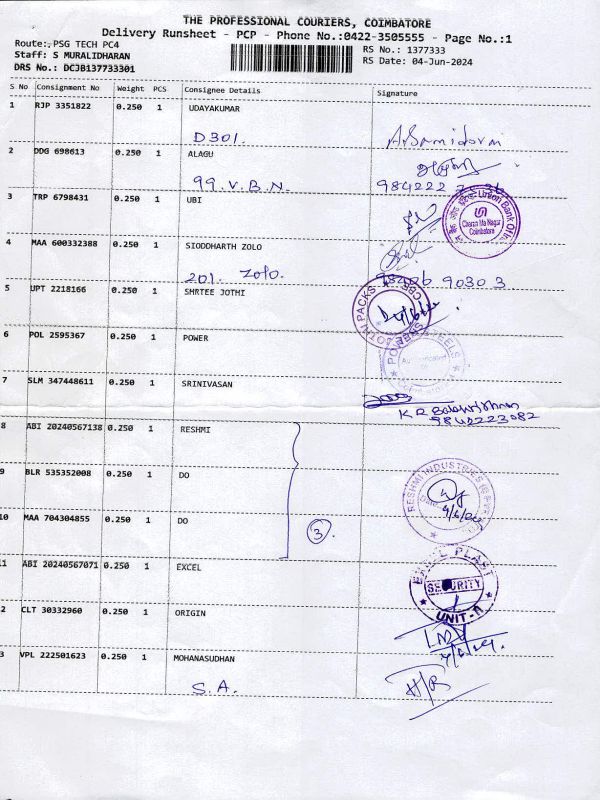 THE PROFESSIONAL COURIERS, COIMBATORE
Delivery Runsheet - PCP - Phone No.:0422-3505555 - Page No.:1
Route:. PSG TECH PC4
RS No.: 1377333
Staff: S MURALIDHARAN
RS Date: 04-Jun-2024
DRS No.: DCJB137733301
S No Consignment No Weight PCS Consignee Details Signature
1 RJP 3351822 0.250 1 UDAYAKUMAR
D301.
2 DDG 698613 0.250 1 ALAGU
99. V.B.N.
984222
3 TRP 6798431 0.250 1 UBI
Union Bank Of
Cheran Ma Nagar
Coimbatore
4 MAA 600332388 0.250 1 SIODDHARTH ZOLO
201. Zolo.
90303
5 UPT 2218166 0.250 1 SHRTEE JOTHI
JOTHI PACKS
6 POL 2595367 0.250 1 POWER
POWER
7 SLM 347448611 0.250 1 SRINIVASAN
9842223082
8 ABI 20240567138 0.250 1 RESHMI
9 BLR 535352008 0.250 1 DO
RESHMI INDUSTRIES
4/6/24
10 MAA 704304855 0.250 1 DO
3
11 ABI 20240567071 0.250 1 EXCEL
EXCEL PLAST
SECURITY
UNIT-A
2 CLT 30332960 0.250 1 ORIGIN
4/6/24
3 VPL 222501623 0.250 1 MOHANASUDHAN
S.A.